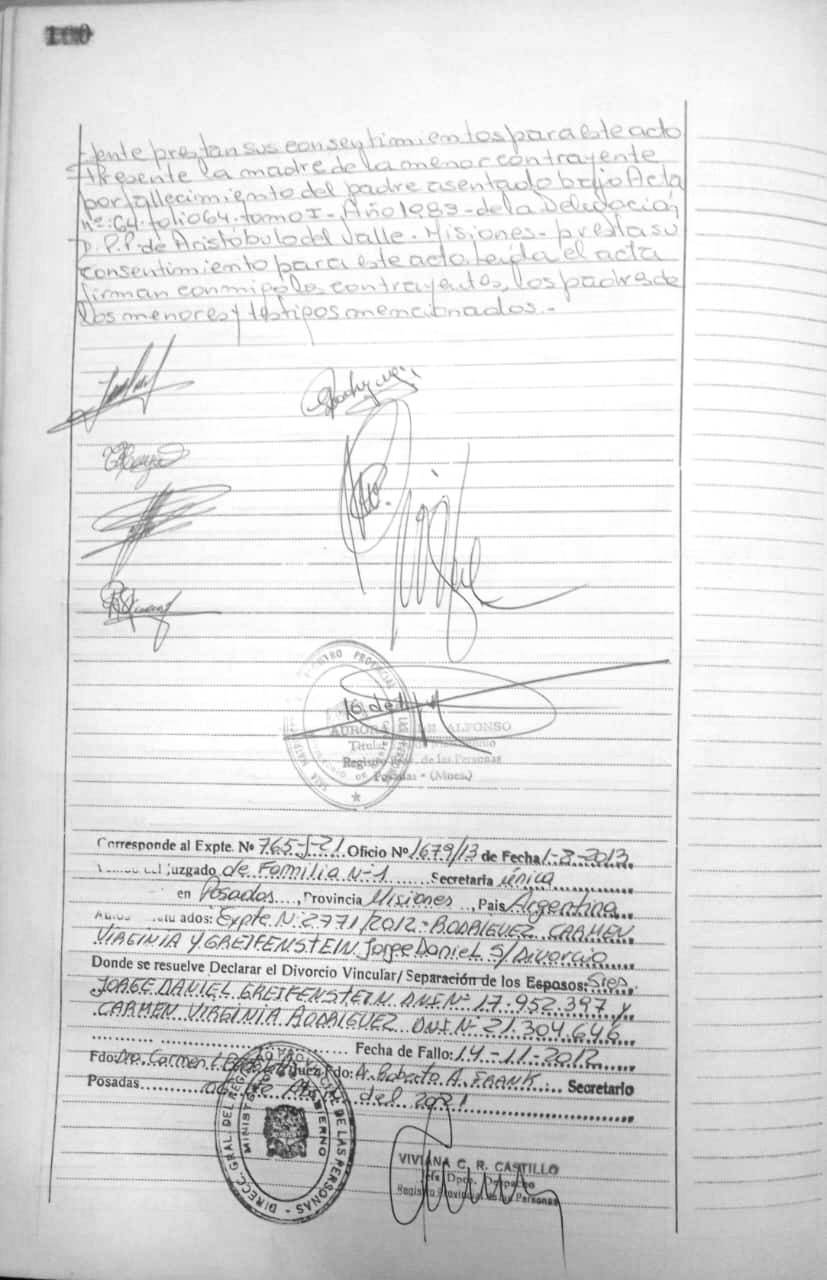 100
ente prestan sus consentimientos para este acto
Presente la madre de la menor contrayente
por fallecimiento del padre asentado bajo Acta
nº: 64. folio 64. tomo I - Año 1983 - de la Delegación
D.P.P. de Aristóbulo del Valle - Misiones - presta su
consentimiento para este acto. Leída el acta
firman conmigo los contrayentes, los padres de
los menores y testigos mencionados. -
REGISTRO PROVINCIAL
AURORA DE ALFONSO
Titular
Registro Prov. de las Personas
Posadas - (Mnes.)
Corresponde al Expte. Nº 765-J-21 Oficio Nº 1679/13 de Fecha 1-8-2013
del juzgado de Familia N-1 Secretaria única
en Posadas, Provincia Misiones, Pais Argentina
Autos caratulados: Expte. N: 2771/2012 - RODRIGUEZ CARMEN
VIRGINIA Y GREIFENSTEIN Jorge Daniel S/Divorcio
Donde se resuelve Declarar el Divorcio Vincular/ Separación de los Esposos: Sres
JORGE DANIEL GREIFENSTEIN DNI Nº 17.952.397 y
CARMEN VIRGINIA RODRIGUEZ DNI N: 21.304.646
Fecha de Fallo: 14-11-2012
Fdo: Dra. Carmen Juez Fdo: Dr. Roberto A. FRANK Secretario
Posadas de del 2021
DIRECC. GRAL. DEL REGISTRO PROVINCIAL DE LAS PERSONAS
MINISTERIO GOBIERNO
VIVIANA C. R. CASTILLO
Jefe Dpto. Despacho
Registro Provincial de las Personas